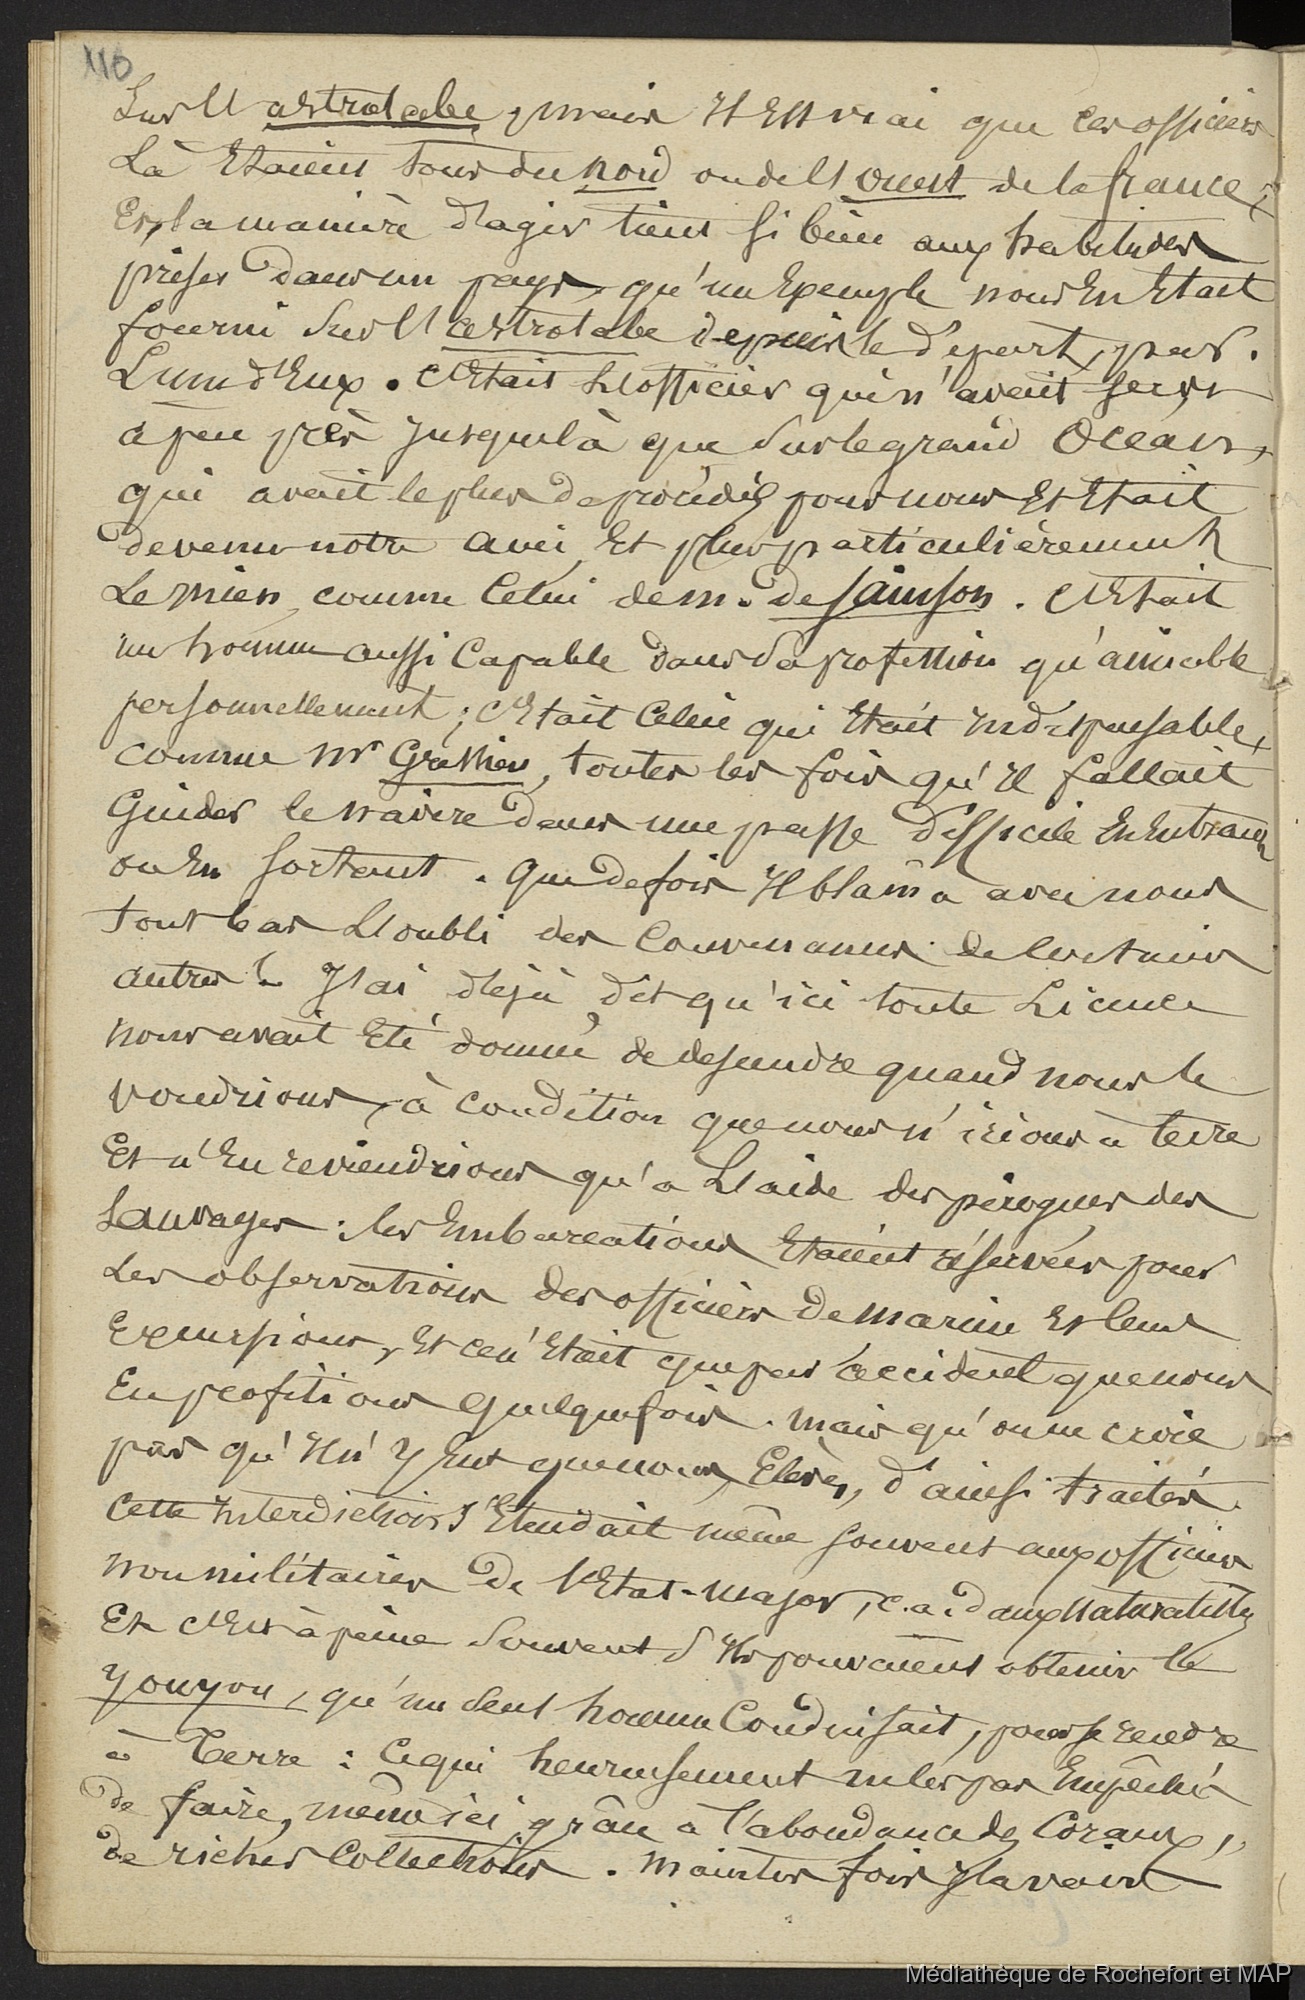 110
Sur l'astrolabe, mais Il Est vrai que ces officiers
Là Etaient Tous du nord ou de l'ouest de la france ;
Et, la manière d'agir tient si bien aux habitudes
prises dans un pays, qu'un Exemple nous En Etait
fourni sur l'astrolabe depuis le départ, par
L'un d'Eux. C'Etait L'officier qui n'avait servi
à peu près Jusques là que sur le grand Océan,
qui avait le plus de procédés pour nous Et Etait
devenu notre ami, Et plus particulièrement
Le mien, comme Celui de m. de sainson. C'Etait
un homme aussi Capable dans sa profession qu'aimable
personnellement ; C'Etait Celui qui Etait Indispensable,
comme Mr Gressien, toutes les fois qu'Il fallait
Guider le navire dans une passe difficile En Entrant
ou En sortant. Que de fois Il blâma avec nous
tout bas L'oubli des Convenances de Certains
autres ! J'ai déjà dit qu'ici toute Licence
nous avait Eté donnée de descendre quand nous le
voudrions, à Condition que nous n'irions à terre
Et n'En reviendrions qu'à L'aide des pirogues des
Sauvages : les Embarcations Etaient réservées pour
Les observations des officiers de marine Et leurs
Excursions, Et ce n'Etait que par accident que nous
En profitions Quelquefois. Mais qu'on ne croie
pas qu'Il n'y Eut que nous, Elèves, d'ainsi traités.
Cette Interdiction s'Etendait même souvent aux officiers
non militaires de l'Etat-major, c. a. d aux naturalistes
Et C'Est à peine souvent s'Ils pouvaient obtenir le
Youyou, qu'un seul homme Conduisait, pour se rendre
à Terre : Ce qui heureusement ne les pas Empêchés
de faire, même ici, grâce à l'abondance des Coraux,
de riches Collections. Maintes fois J'avais
Médiathèque de Rochefort et MAP